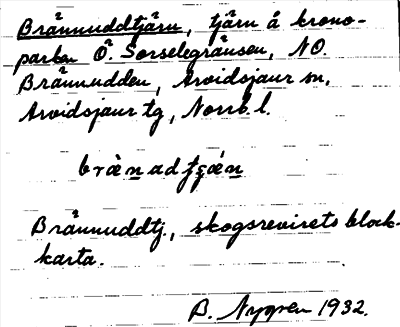 Brännuddtjärn, tjärn å krono-
parken Ö. Sorselegränsen, NO.
Brännudden, Arvidsjaur sn,
Arvidsjaur tg, Norrb. l.
Brännuddtj., skogsrevirets block-
karta.
B. Nygren 1932.